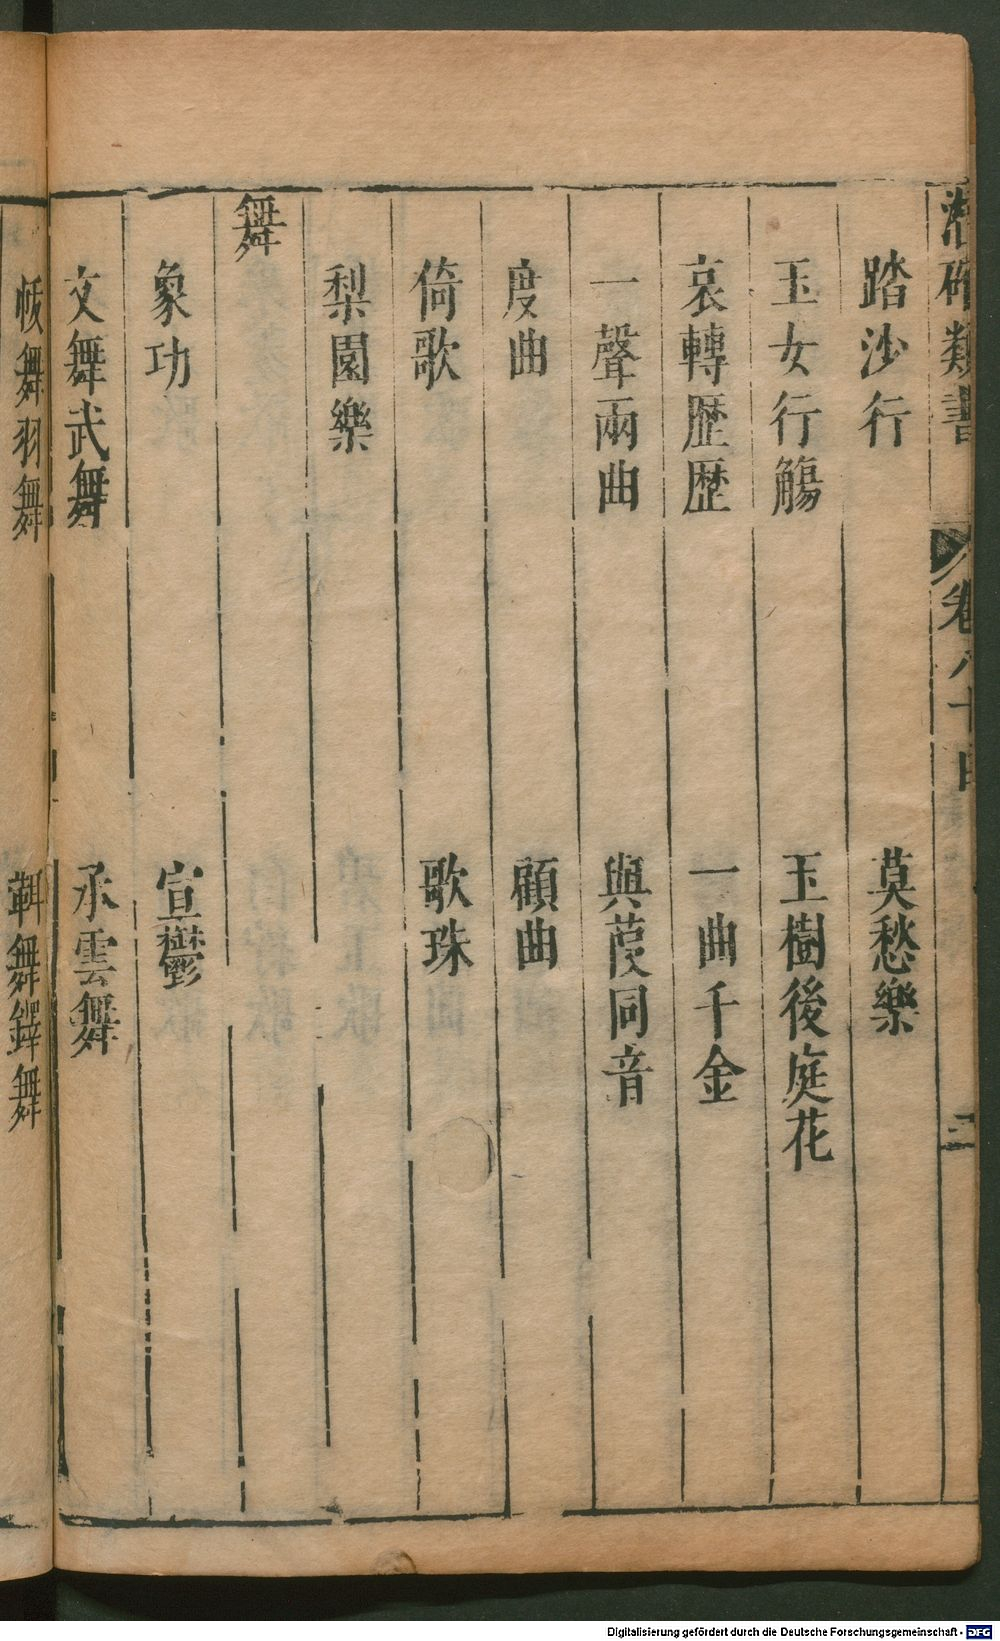 潛確類書 卷八十四 二
踏沙行 莫愁樂
玉女行觴 玉樹後庭花
哀轉歷歷 一曲千金
一聲兩曲 與葭同音
度曲 顧曲
倚歌 歌珠
梨園樂
舞
象功 宣鬱
文舞武舞 承雲舞
帗舞羽舞 鞞舞鐸舞
Digitalisierung gefördert durch die Deutsche Forschungsgemeinschaft - DFG